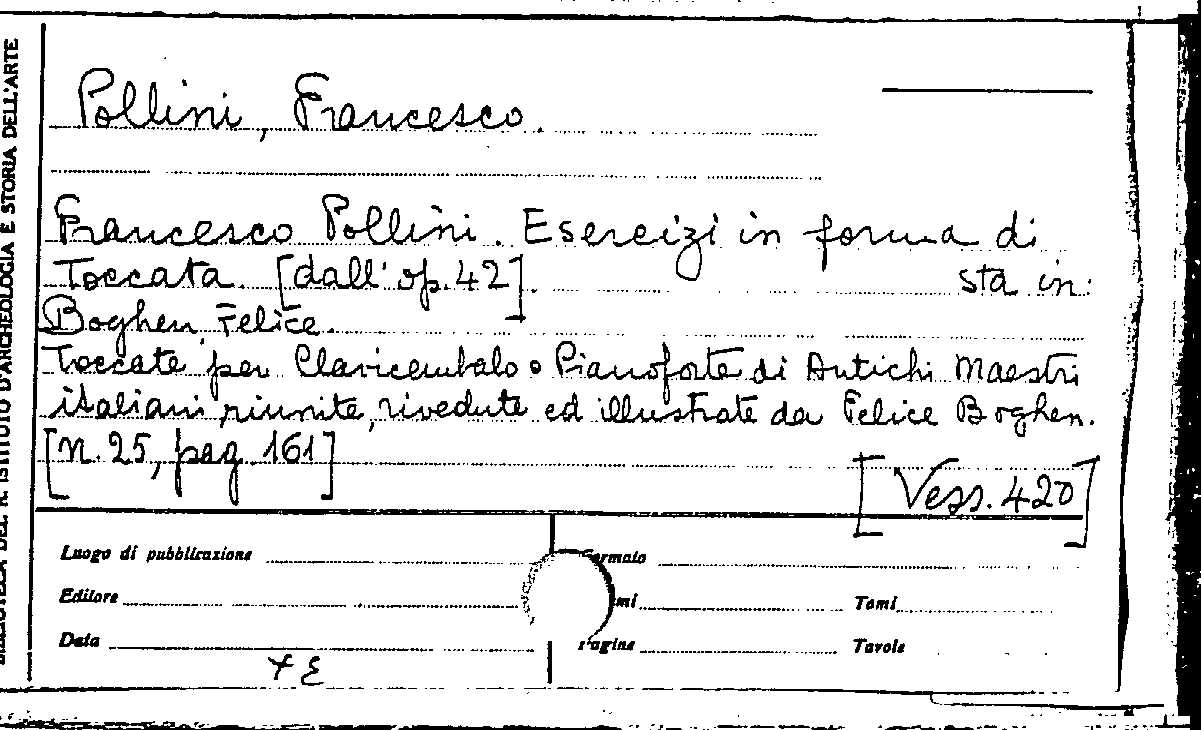 BIBLIOTECA DEL R. ISTITUTO D'ARCHEOLOGIA E STORIA DELL'ARTE
Pollini, Francesco.
Francesco Pollini. Esercizi in forma di
Toccata. [dall' op. 42]. sta in:
Boghen, Felice.
Toccate per Clavicembalo o Pianoforte di Antichi Maestri
italiani, riunite, rivedute ed illustrate da Felice Boghen.
[N. 25, pag. 161]
[Vess. 420]
Luogo di pubblicazione
Formato
Editore
Tomi
Data
Pagine
Tavole